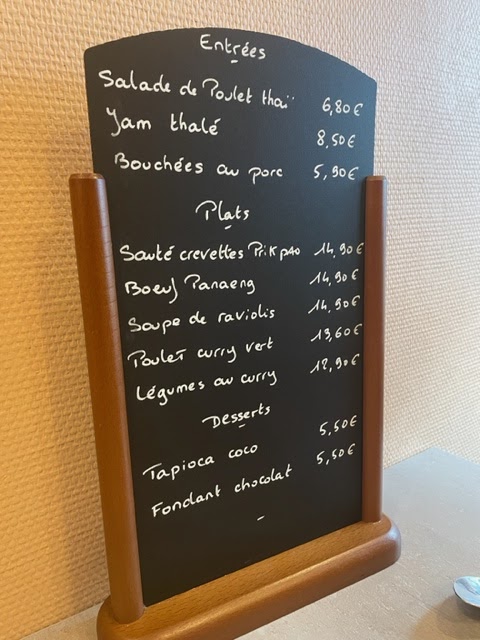 Entrées
Salade de Poulet thaï 6,80€
Yam thalé 8,50€
Bouchées au porc 5,90€
Plats
Sauté crevettes Prik pao 14,90€
Boeuf Panaeng 14,90€
Soupe de raviolis 14,90€
Poulet curry vert 13,60€
Légumes au curry 12,90€
Desserts
Tapioca coco 5,50€
Fondant chocolat 5,50€